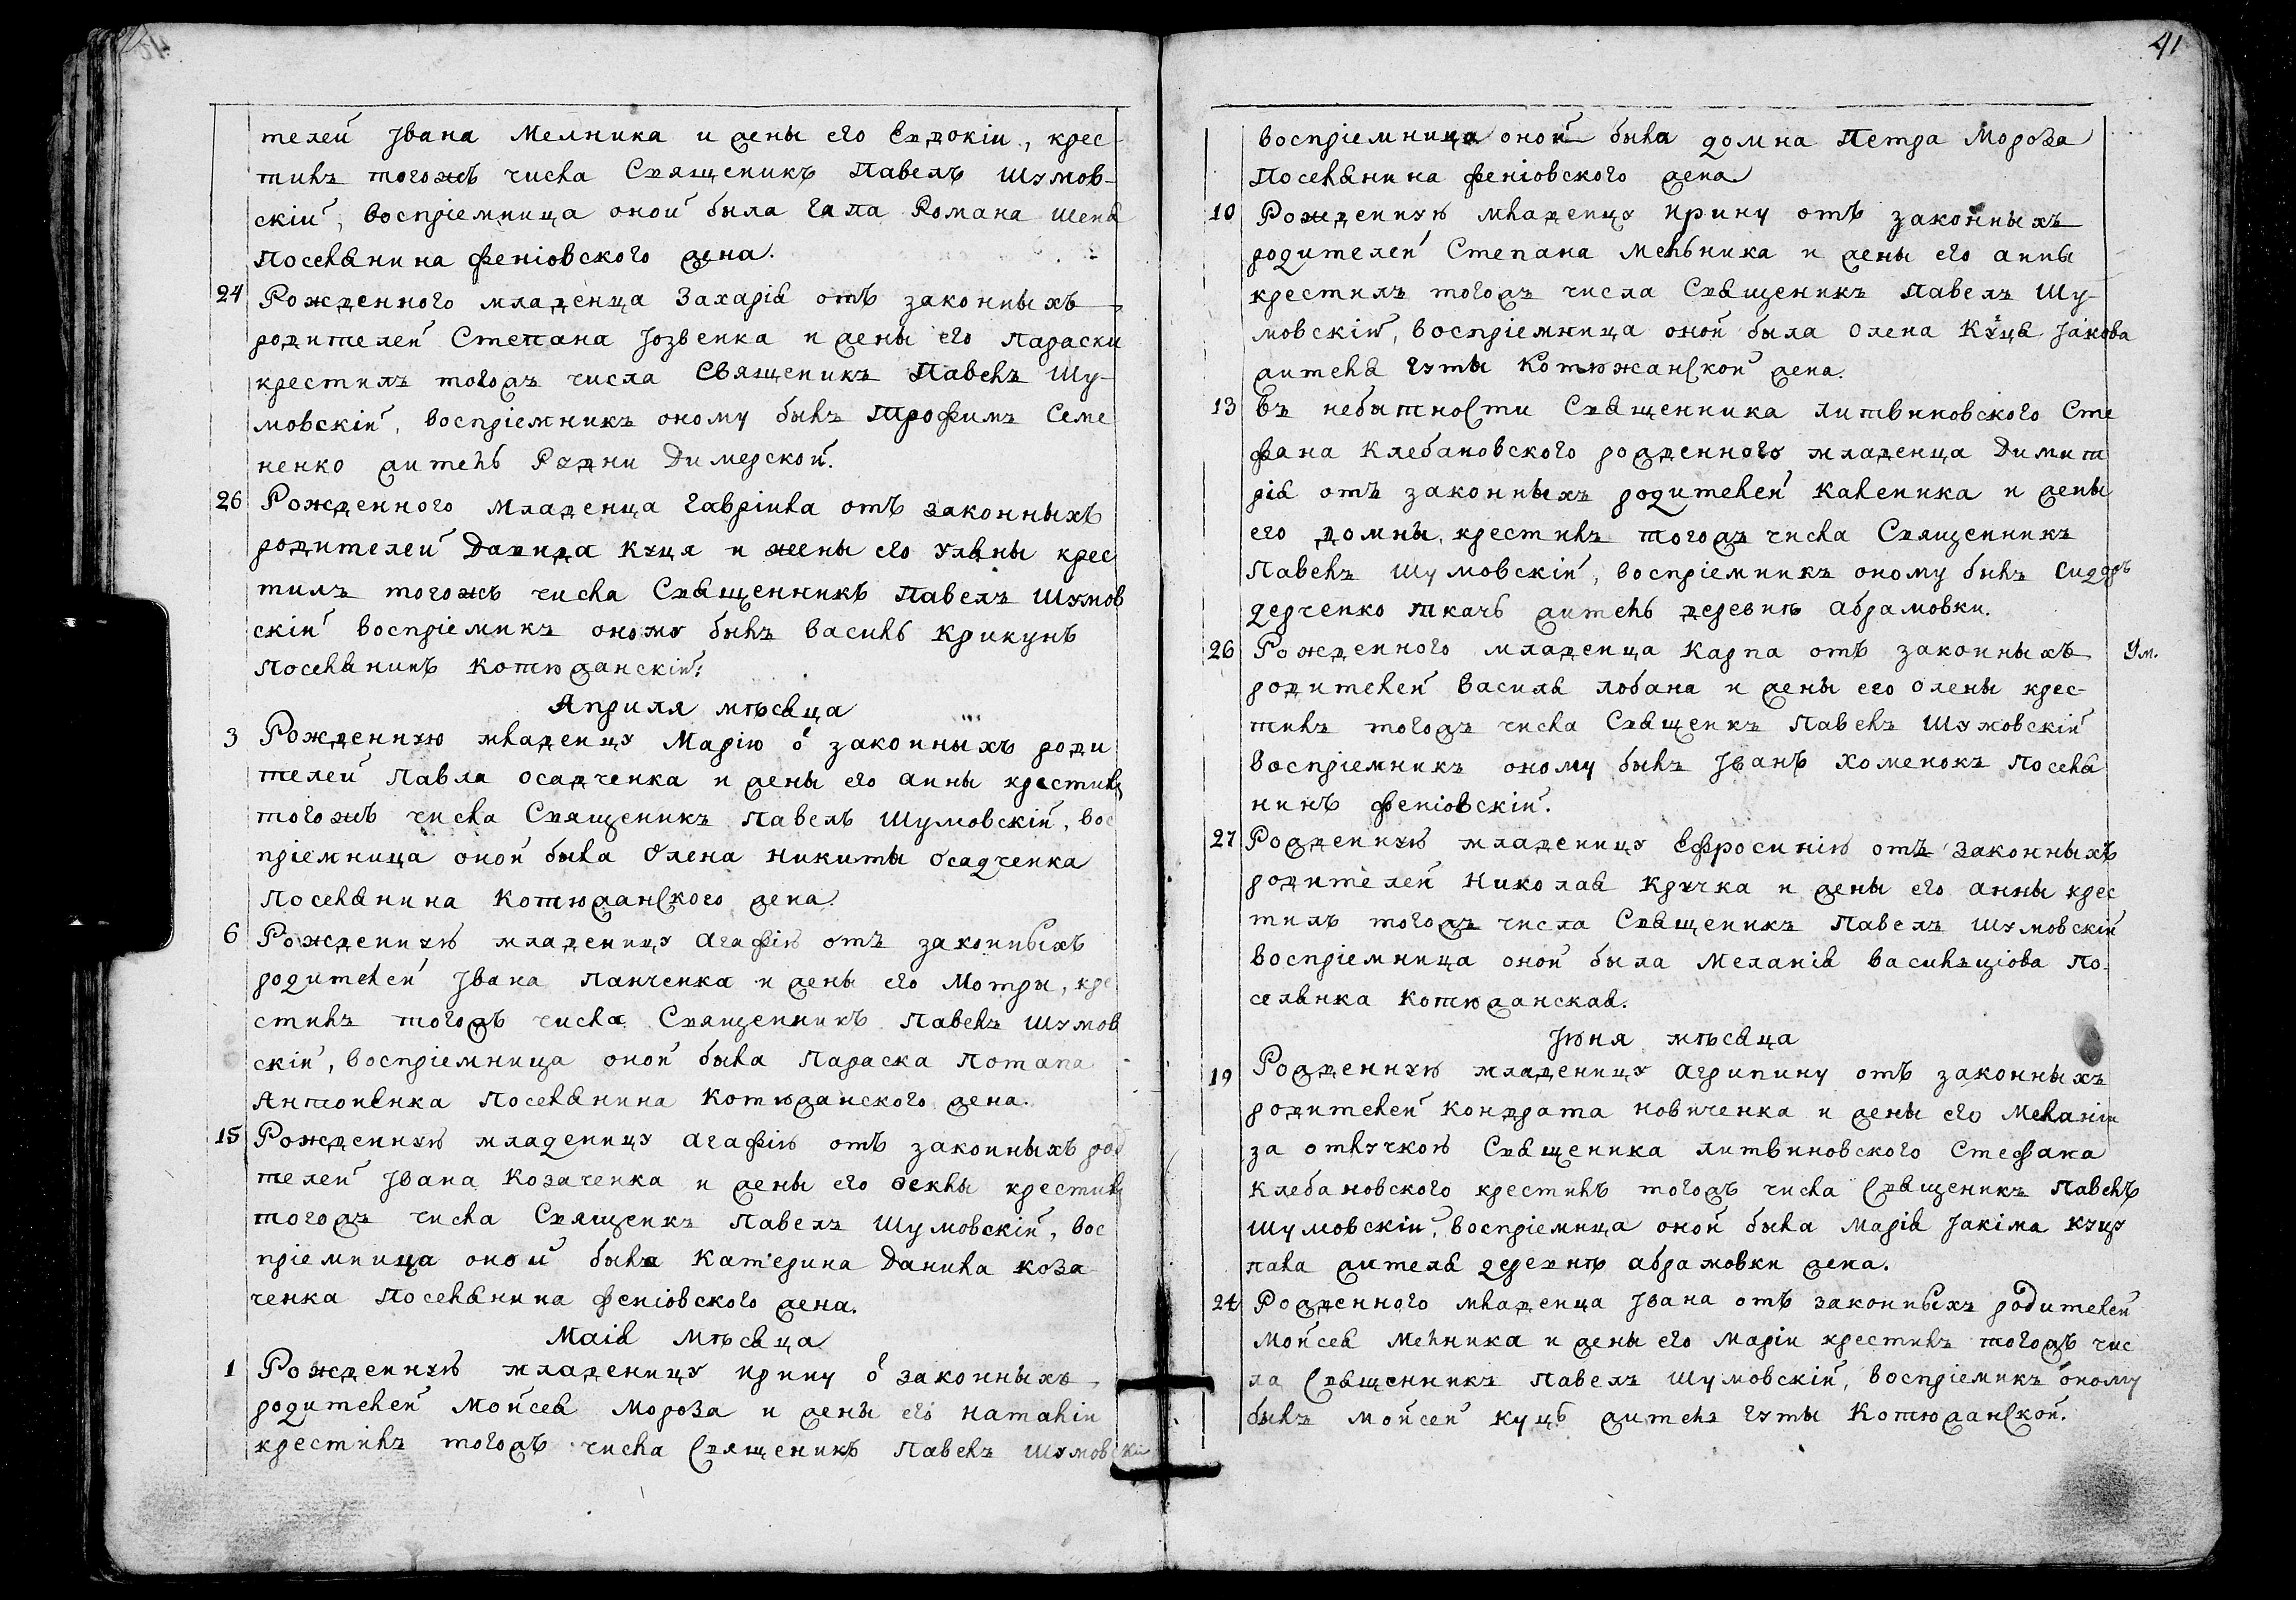 41
телей Iвана Мелника и жены его Евдокiи, крес-
тилъ тогожъ числа Священикъ Павелъ Шумов-
скiй, воспрiемница оной была Гапа Романа
поселянина фенiовского жена.
24 Рожденного младенца Захарiя отъ законныхъ
родителей Степана Iозвенка и жены его Параски
крестилъ тогожъ числа Священикъ Павелъ Шу-
мовскiй, воспрiемникъ оному былъ Трофимъ Семе
ненко житель Рудни Димерской.
26 Рожденного младенца Гаврiила отъ законныхъ
родителей Давида Куця и жены его Уляны крес
тилъ тогожъ числа Священникъ Павелъ Шумов
скiй воспрiемикъ оному былъ Василь Крикунъ
поселянинъ котюжанскiй:
Априля мѣсяца
3 Рожденную младенцу Марiю ѿ законныхъ роди
телей Павла Осадченка и жены его Анны крестилъ
тогожъ числа Священикъ Павелъ Шумовскiй, вос
прiемница оной была Олена Никиты Осадченка
поселянина котюжанского жена.
6 Рожденную младеницу Агафiю отъ законныхъ
родителей Iвана Панченка и жены его Мотри, кре
стилъ тогожъ числа Священникъ Павелъ Шумов
скiй, воспрiемница оной была Параска Потапа
Антоненка поселянина Котюжанского жена.
15 Рожденную младеницу Агафiю отъ законныхъ род
телей Iвана Козаченка и жены его Феклы крестилъ
тогожъ числа Священкъ Павелъ Шумовскiй, вос
прiемница оной была Катерина Данила Коза
ченка поселянина фенiовского жена.
Маiя мѣсяца
1 Рожденную младеницу Ирину ѿ законныхъ
родителей Мойсея Мороза и жены его Наталiи
крестилъ тогожъ числа Священикъ Павелъ Шумовскiй
воспрiемница оной была Домна Петра Мороза
поселянина фенiовского жена
10 Рожденную младенцу Ирину отъ законныхъ
родителей Степана Мельника и жены его Анны
крестилъ тогожъ числа Священикъ Павелъ Шу-
мовскiй, воспрiемница оной была Олена Куця Iакова
жителя Гуты Котюжанской жена.
13 Въ небытности Священника литвиновского Сте
фана Клебановского рожденного младенца Димит
рiя отъ законныхъ родителей Каленика и жены
его Домны, крестилъ тогожъ числа Священникъ
Павелъ Шумовскiй, воспрiемникъ оному былъ Сидоръ
Дедченко ткачь житель деревнѣ Абрамовки.
26 Рожденного младенца Карпа отъ законныхъ Ум.
родителей Василя Лобана и жены его Олены крес-
тилъ тогожъ числа Священкъ Павелъ Шумовскiй
воспрiемникъ оному былъ Iванъ Хоменокъ поселя
нинъ фенiовскiй.
27 Рожденную младеницу Ефросинiю отъ законныхъ
родителей Николая Кручка и жены его Анны крес
тилъ тогожъ числа Священикъ Павелъ Шумовскiй
воспрiемница оной была Меланiя Васильцiова по-
селянка котюжанская.
Iюня мѣсяца
19 Рожденную младеницу Агрипину отъ законныхъ
родителей Кондрата Новиченка и жены его Меланiи
за отлучкою Священика литвиновского Стефана
Клебановского крестилъ тогожъ числа Священикъ Павелъ
Шумовскiй, воспрiемица оной была Марiя Iакима Куцу
пала жителя деревнѣ Абрамовки жена.
24 Рожденного младенца Iвана отъ законныхъ родителей
Мойсея Мелника и жены его Марiи крестилъ тогожъ чис
ла Священникъ Павелъ Шумовскiй, воспрiемикъ оному
былъ Мойсей Куць жителъ Гуты Котюжанской.